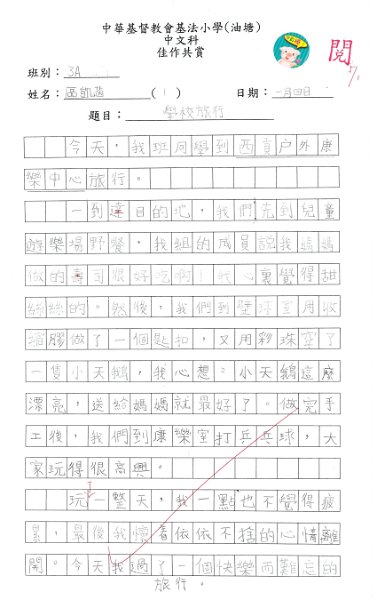 中華基督教會基法小學(油塘)
中文科
佳作共賞
閱
班別:3A
姓名:
( 1 )
日期:一月四日
題目:學校旅行
今天,我班同學到西貢戶外康
樂中心旅行。
一到達目的地,我們先到兒童
遊樂場野餐,我組的成員說我媽媽
做的壽司很好吃啊!我心裏覺得甜
絲絲的。然後,我們到壁球室用收
縮膠做了一個匙扣,又用彩珠穿了
一隻小天鵝,我心想:小天鵝這麼
漂亮,送給媽媽就最好了。做完手
工後,我們到康樂室打乒乓球,大
家玩得很高興。
玩了一整天,我一點也不覺得疲
累,最後我懷着依依不捨的心情離
開。今天我過了一個快樂而難忘的
旅行。